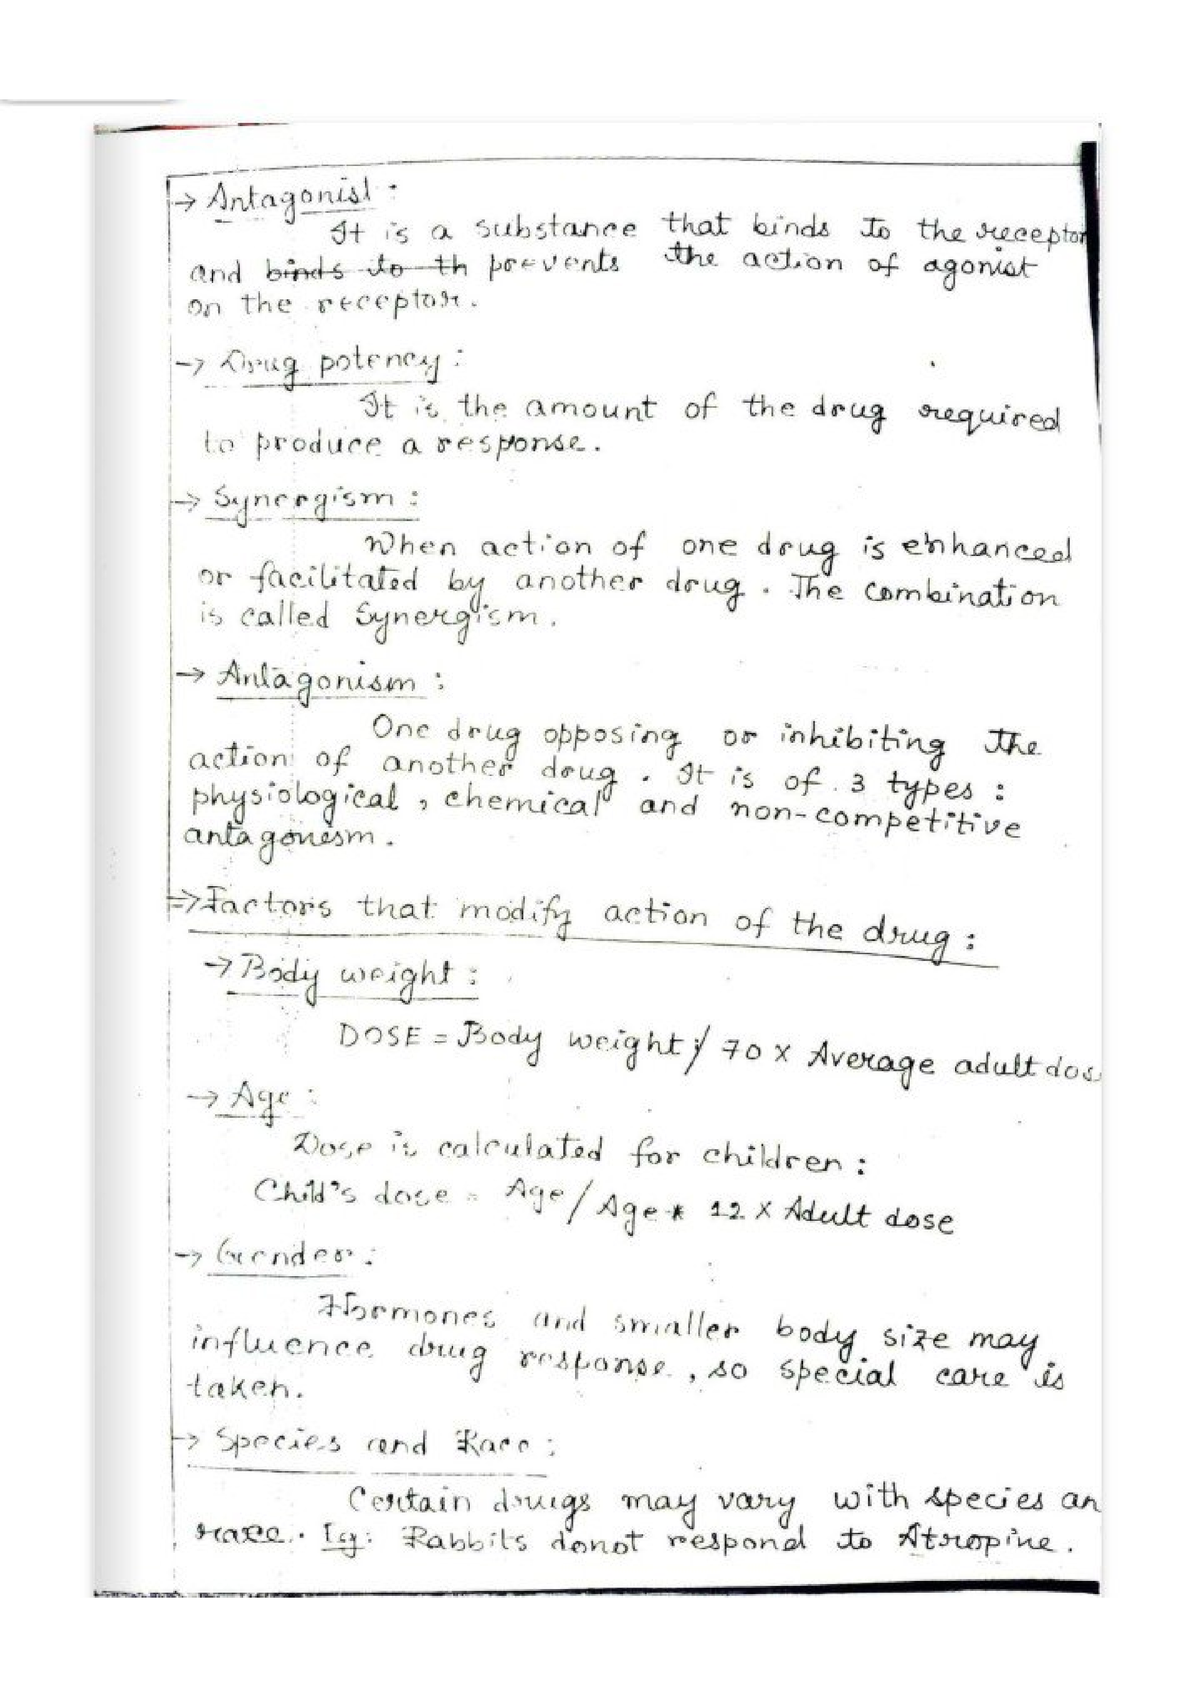 → Antagonist :
It is a substance that binds to the receptor
and binds to th prevents the action of agonist
on the receptor.
→ Drug potency :
It is the amount of the drug required
to produce a response.
→ Synergism :
When action of one drug is enhanced
or facilitated by another drug. The combination
is called Synergism.
→ Antagonism :
One drug opposing or inhibiting the
action of another drug. It is of 3 types :
physiological, chemical and non-competitive
antagonism.
⇒ Factors that modify action of the drug :
→ Body weight :
DOSE = Body weight / 70 x Average adult dos
→ Age :
Dose is calculated for children :
Child's dose = Age / Age * 12 x Adult dose
→ Gender :
Hormones and smaller body size may
influence drug response, so special care is
taken.
→ Species and Race :
Certain drugs may vary with species an
race. Eg: Rabbits donot respond to Atropine.